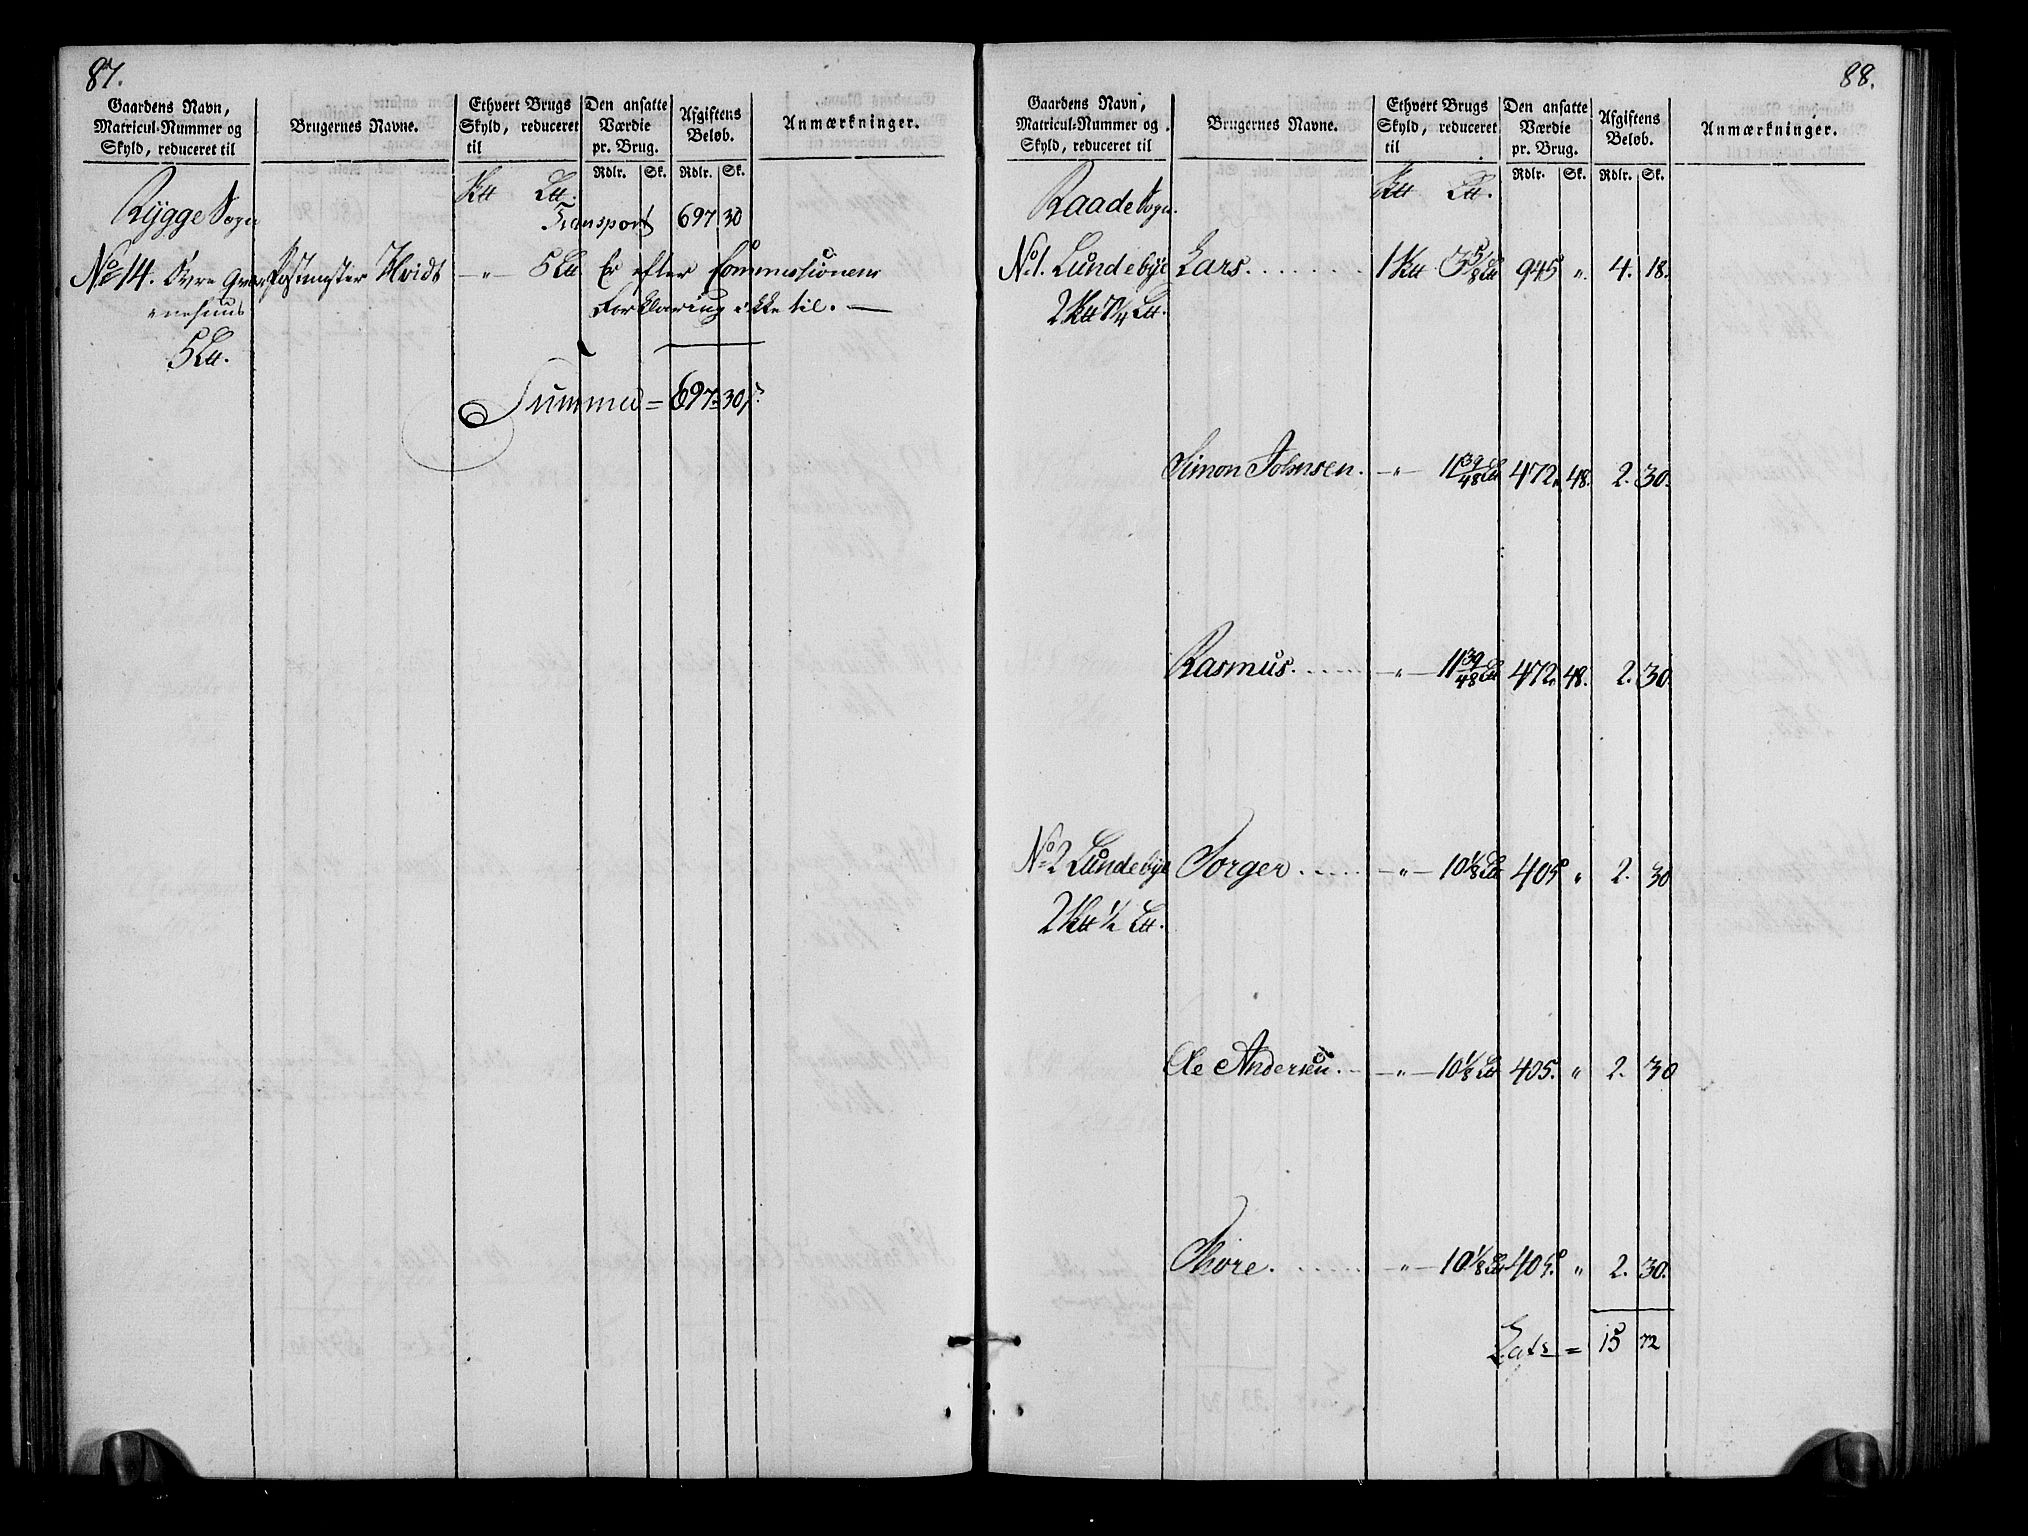 87.
Gaardens Navn, Matricul-Nummer og Skyld, reduceret til
Brugernes Navne.
Ethvert Brugs Skyld, reduceret til
Den ansatte Værdie pr. Brug.
Afgiftens Beløb.
Anmærkninger.
Rdlr. Sk. Rdlr. Sk.
Rygge Sogn
Transport 697 30
No 14. Øvre Postmester Hvidt - " - 5 Er efter Commissionens
Forklaring ikke til. —
5
Summa = 697 = 30
88.
Gaardens Navn, Matricul-Nummer og Skyld, reduceret til
Brugernes Navne.
Ethvert Brugs Skyld, reduceret til
Den ansatte Værdie pr. Brug.
Afgiftens Beløb.
Anmærkninger.
Rdlr. Sk. Rdlr. Sk.
Raade Sogn.
No 1. Lundebye Lars. 1 3 5/8 945 " 4. 18.
2 7 1/4
Simon Johnsen. - " - 11 39/48 472. 48. 2. 30.
Rasmus. - " - 11 39/48 472. 48. 2. 30.
No 2 Lundebye Torger. - " - 10 1/8 405 " 2. 30
2 1/2
Ole Andersen. - " - 10 1/8 405. " 2. 30
Thore. - " - 10 1/8 405. " 2. 30.
Lats = 15 72